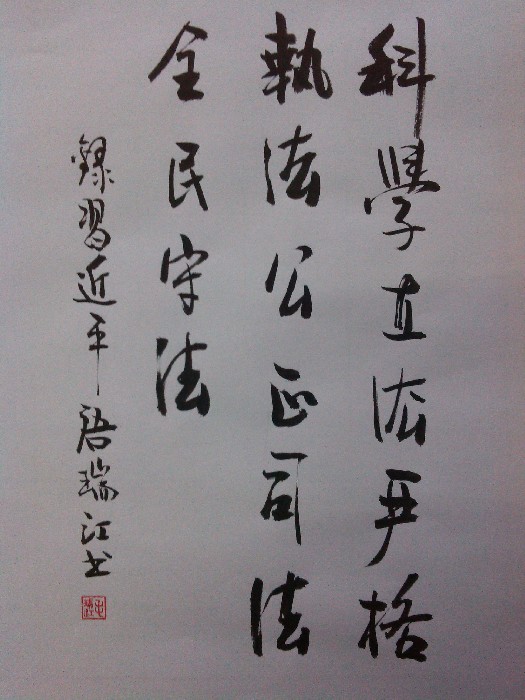 科學立法严格
執法公正司法
全民守法
録習近平语瑞江书